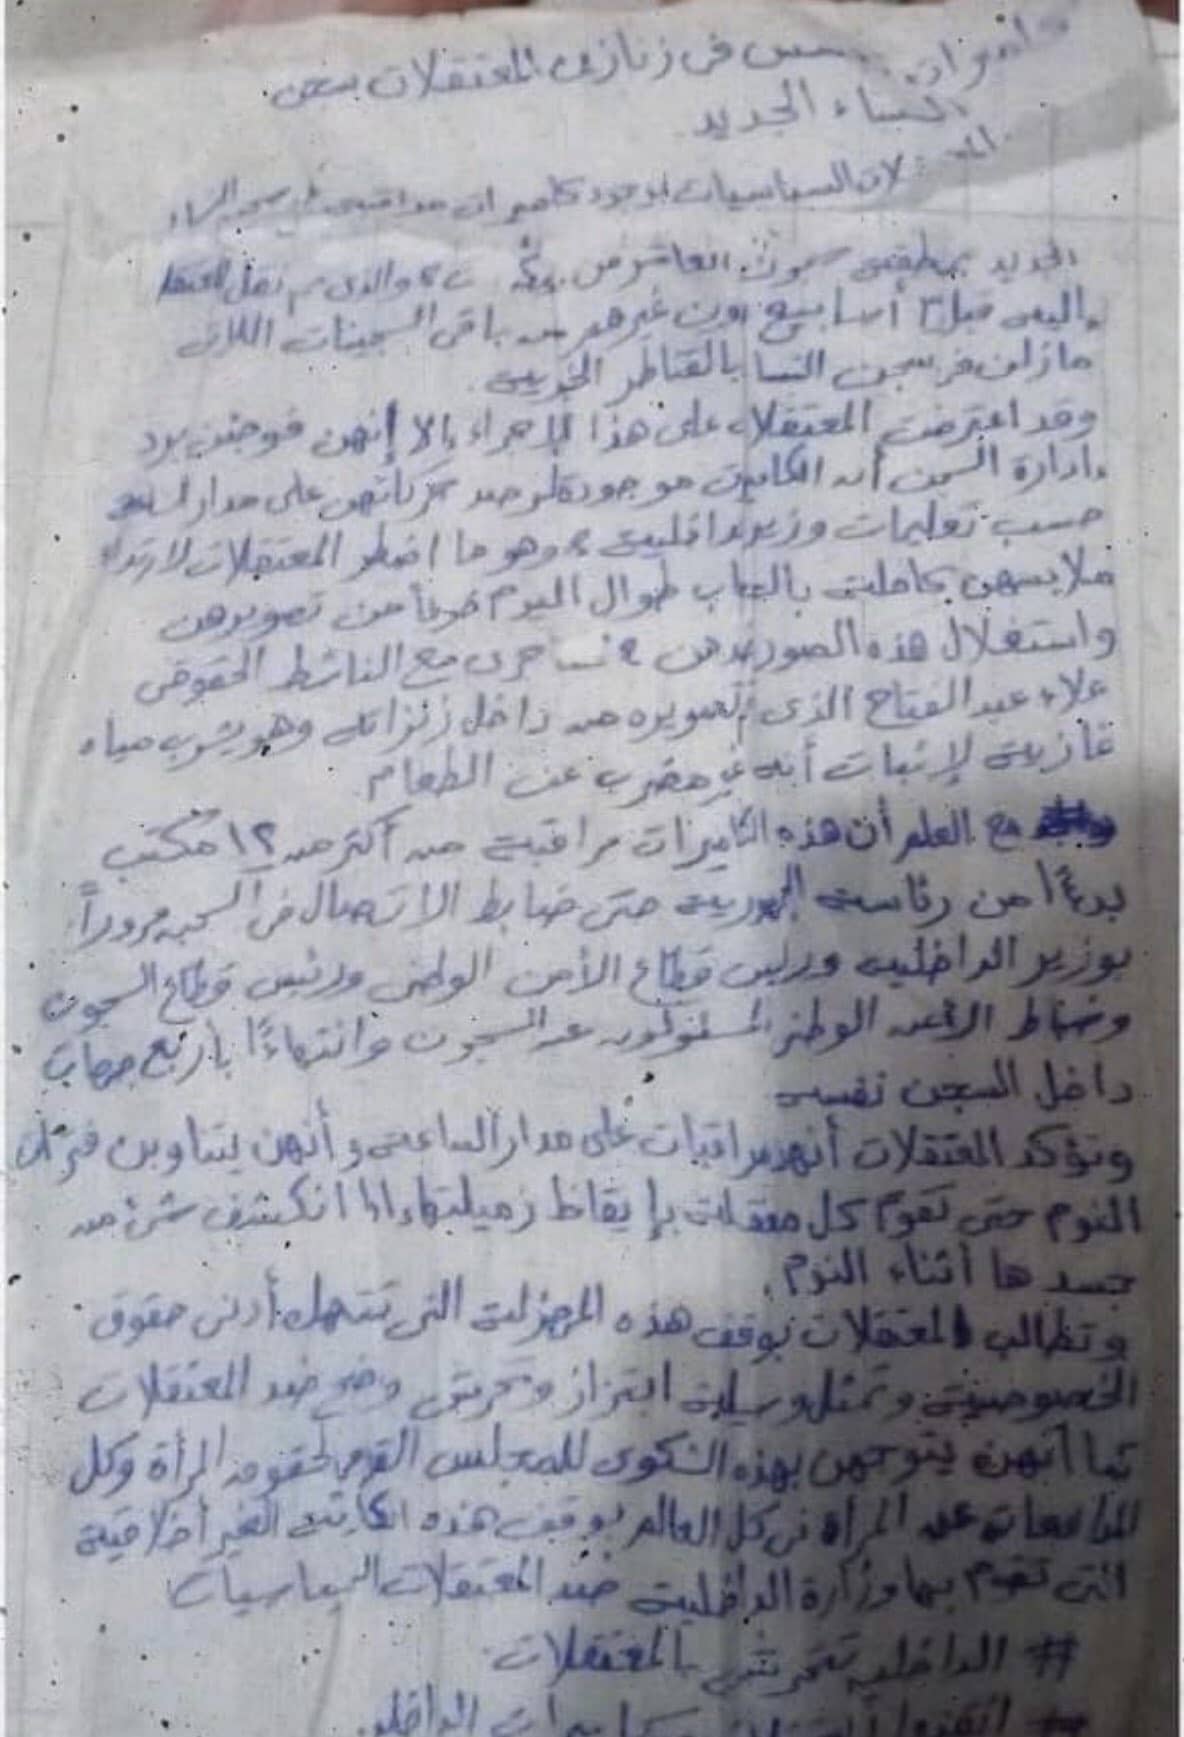 كاميرات تجسس في زنازين المعتقلات بسجن
النساء الجديد
السياسيات لوجود كاميرات مراقبة في سجن النساء
الجديد بمنطقة سجون العاشر من والذي تم نقل
إليه قبل ٣ أسابيع دون غيرهم من باقي السجينات اللاتي
مازلن في سجن النسا بالقناطر الخيرية.
وقد اعترضت المعتقلات على هذا الإجراء إلا إنهن فوجئن برد
إدارة السجن أن الكاميرات موجودة لرصد تحركاتهن على مدار الساعة
حسب تعليمات وزير الداخلية، وهو ما اضطر المعتقلات لارتداء
ملابسهن كاملة بالحجاب طوال اليوم خوفاً من تصويرهن
واستغلال هذه الصور ضدهن جرى مع الناشط الحقوقي
علاء عبد الفتاح الذي تم تصويره من داخل زنزانته وهو يشرب مياه
غازية لإثبات أنه غير مضرب عن الطعام.
مع العلم أن هذه الكاميرات مراقبة من أكثر من ١٢ مكتب
بدءاً من رئاسة الجمهورية حتى ضابط الاتصال في السجن مروراً
بوزير الداخلية ورئيس قطاع الأمن الوطني ورئيس قطاع السجون
وضباط الأمن الوطني المسئولون عن السجون وانتهاءً بأربع جهات
داخل السجن نفسه
وتؤكد المعتقلات أنهن مراقبات على مدار الساعة وأنهن يتناوبن فترات
النوم حتى تقوم كل معتقلة بإيقاظ زميلتها إذا انكشف شئ من
جسدها أثناء النوم.
وتطالب المعتقلات بوقف هذه المهزلة التي تنتهك أدنى حقوق
الخصوصية وتمثل وسيلة ابتزاز وتحرش واضح ضد المعتقلات
كما أنهن يتوجهن بهذه الشكوى للمجلس القومي لحقوق المرأة وكل
المدافعات عن المرأة في كل العالم بوقف هذه الغير أخلاقية
التي تقوم بها وزارة الداخلية ضد المعتقلات السياسيات
# الداخلية تتحرش بالمعتقلات
# أنقذوا كاميرات الداخلية